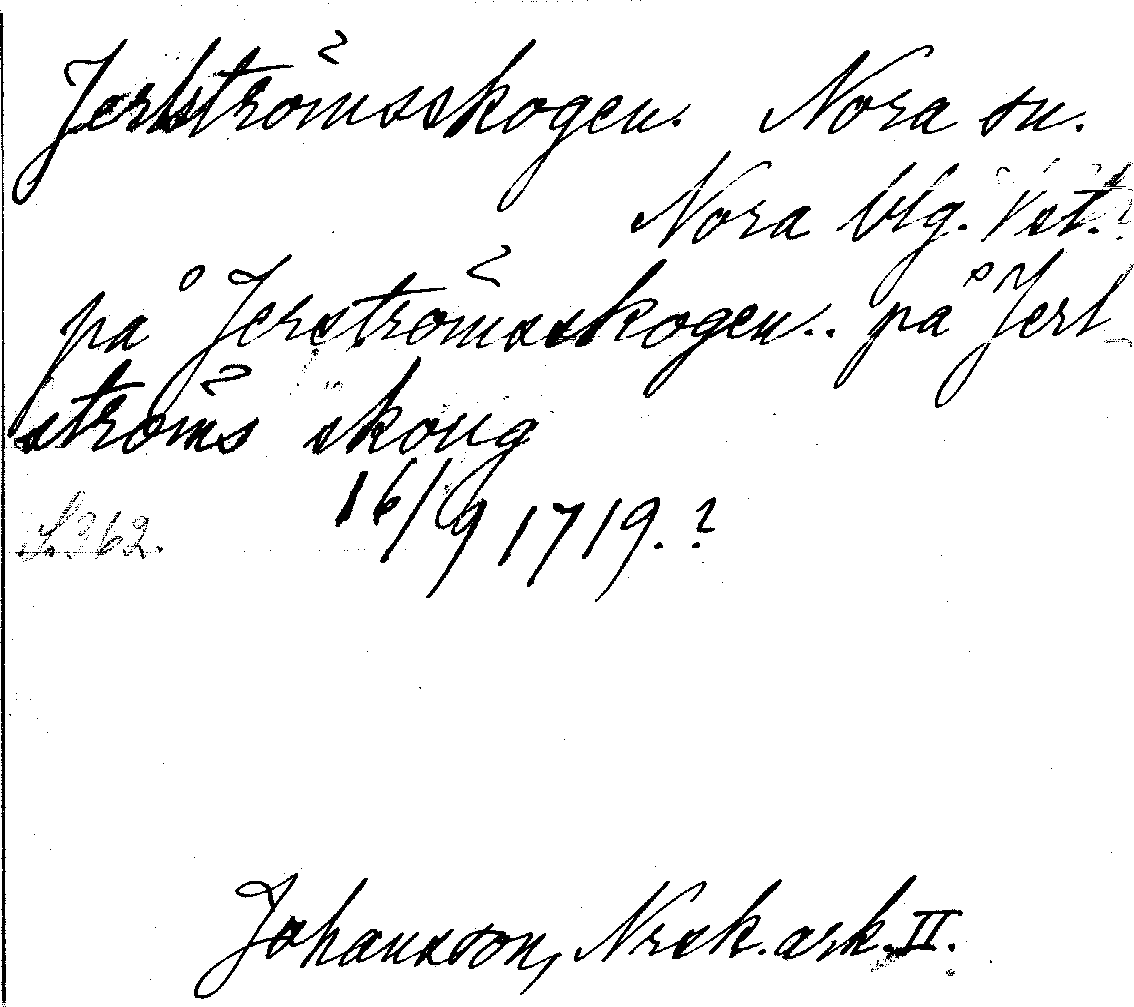 Jerlströmsskogen. Nora sn.
Nora blg. Vst.?
på Jerströmsskogen.. på Jerl-
ströms skoug
S. 362. 16/9 1719.?
Johansson, Nrsk. ark. II.